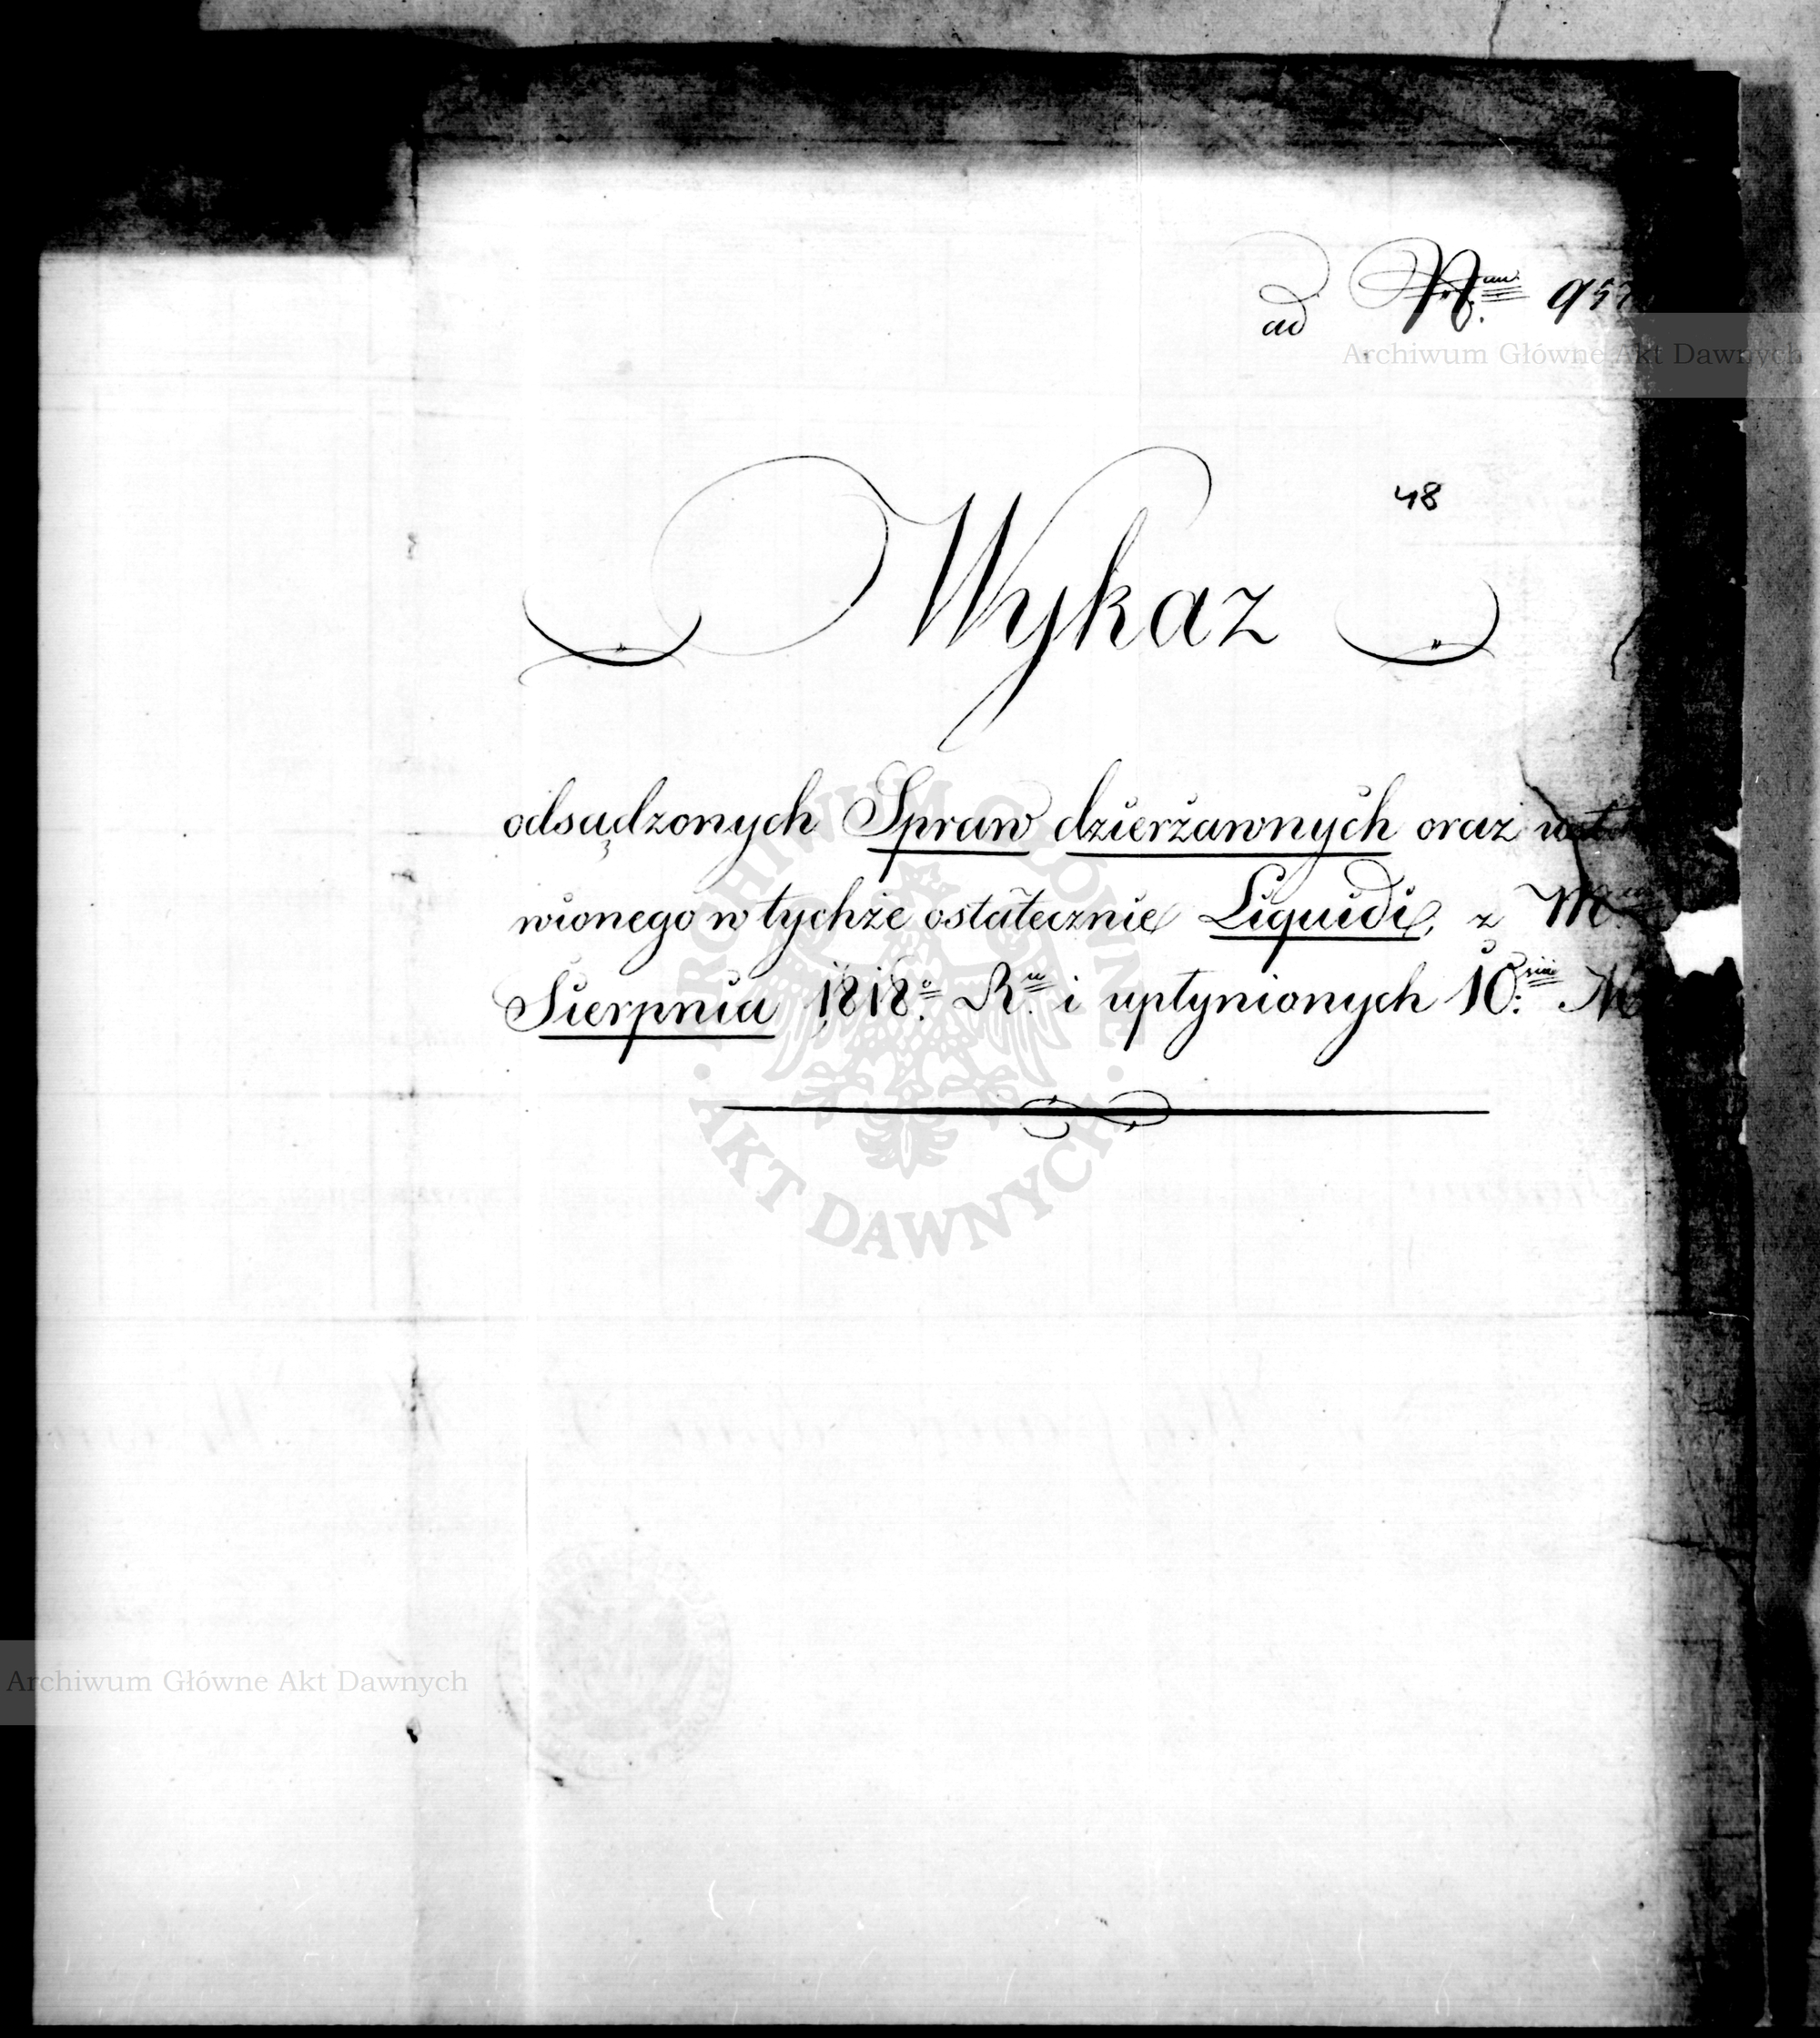 ad Nrum 957
Archiwum Główne Akt Dawnych
48
Wykaz
odsądzonych Spraw dzierżawnych oraz
wionego w tychże ostatecznie Liquidi, z
Sierpnia 1818.° R.u i upłynionych 10.
ARCHIWUM GŁÓWNE
AKT DAWNYCH
Archiwum Główne Akt Dawnych